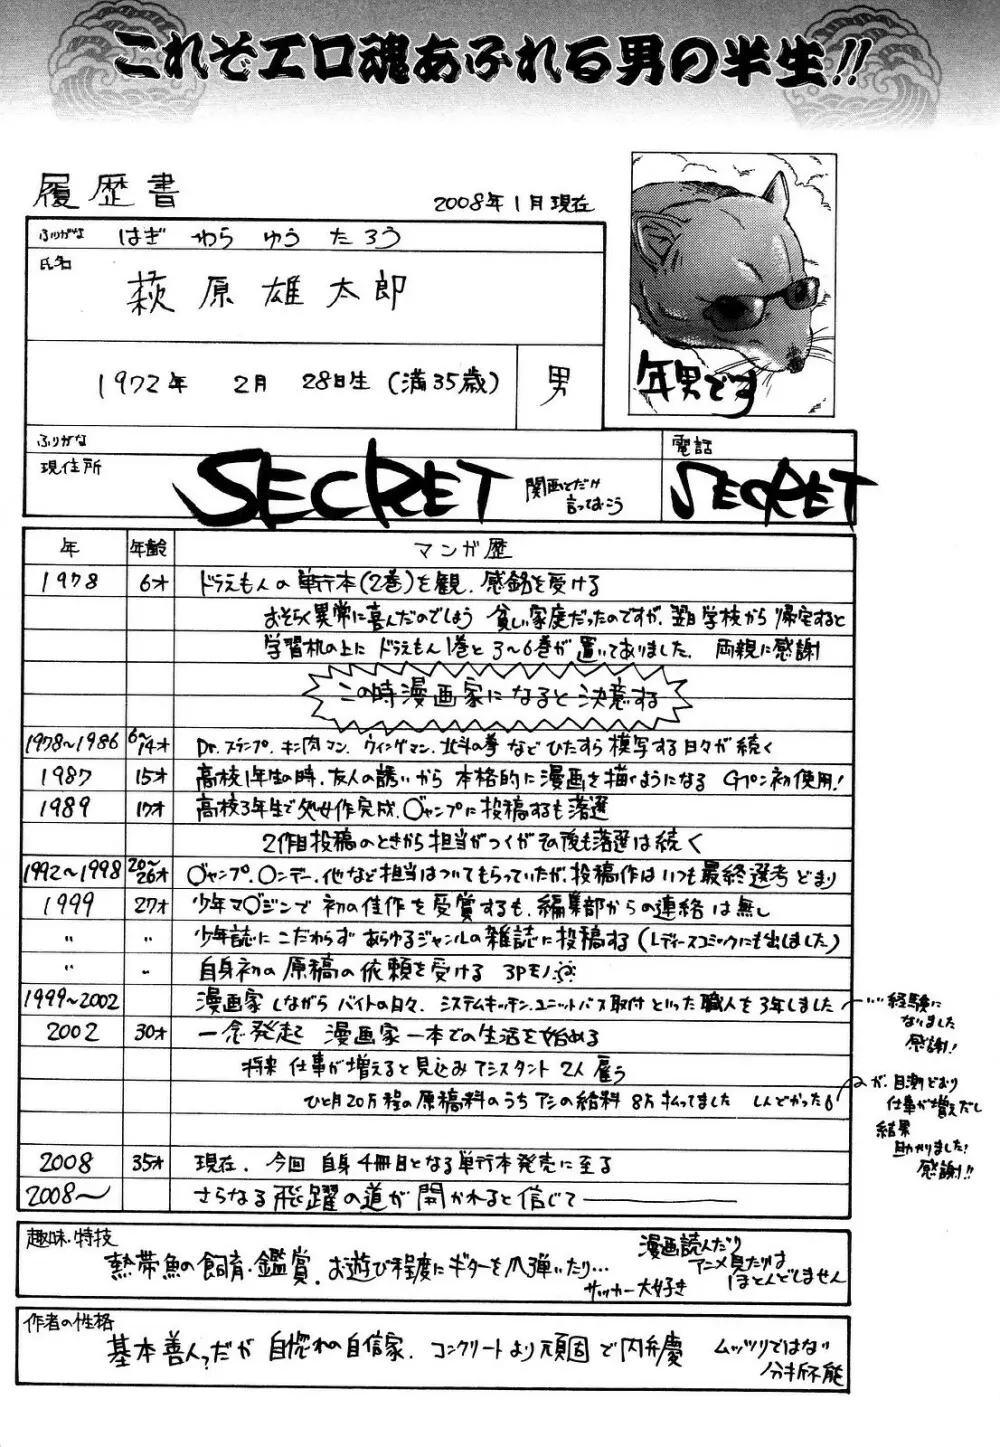 これぞエロ魂あふれる男の半生!!
履歴書
2008年1月現在
ふりがな はぎ わら ゆう たろう
氏名
萩原雄太郎
1972年 2月 28日生(満35歳) 男
年男です
ふりがな
現住所
SECRET
関西とだけ
言っておこう
電話
SECRET
年 年齢 マンガ歴
1978 6才 ドラえもんの単行本(2巻)を観、感銘を受ける
おそらく異常に喜んだのでしょう 貧しい家庭だったのですが、翌日学校から帰宅すると
学習机の上に ドラえもん1巻と3~6巻が置いてありました。両親に感謝
この時漫画家になると決意する
1978~1986 6~14才 Dr.スランプ、キン肉マン、ウイングマン、北斗の拳などひたすら模写する日々が続く
1987 15才 高校1年生の時、友人の誘いから本格的に漫画を描くようになる Gペン初使用!
1989 17才 高校3年生で処女作完成、○ャンプに投稿するも落選
2作目投稿のときから担当がつくがその後も落選は続く
1992~1998 20~26才 ○ャンプ、○ンデー、他など担当はついてもらっていたが、投稿作はいつも最終選考どまり
1999 27才 少年マ○ジンで初の佳作を受賞するも、編集部からの連絡は無し
〃 〃 少年誌にこだわらずあらゆるジャンルの雑誌に投稿する(レディースコミックにも出しました)
〃 〃 自身初の原稿の依頼を受ける 3Pモノ
1999~2002 漫画家しながらバイトの日々、システムキッチン、ユニットバス取付といった職人を3年しました
…経験に
なりました
感謝!
2002 30才 一念発起 漫画家一本での生活を始める
将来 仕事が増えると見込みアシスタント2人雇う
ひと月20万程の原稿料のうちアシの給料8万払ってました しんどかった
が、目測どおり
仕事が増えだし
結果
助かりました!
感謝!!
2008 35才 現在、今回 自身4冊目となる単行本発売に至る
2008~ さらなる飛躍の道が開かれると信じて――
趣味・特技
熱帯魚の飼育・鑑賞、お遊び程度にギターを爪弾いたり…
サッカー大好き
漫画読んだり
アニメ見たりは
ほとんどしません
作者の性格
基本善人?だが 自惚れの自信家、コンクリートより頑固で内弁慶
ムッツリではない
分析不能